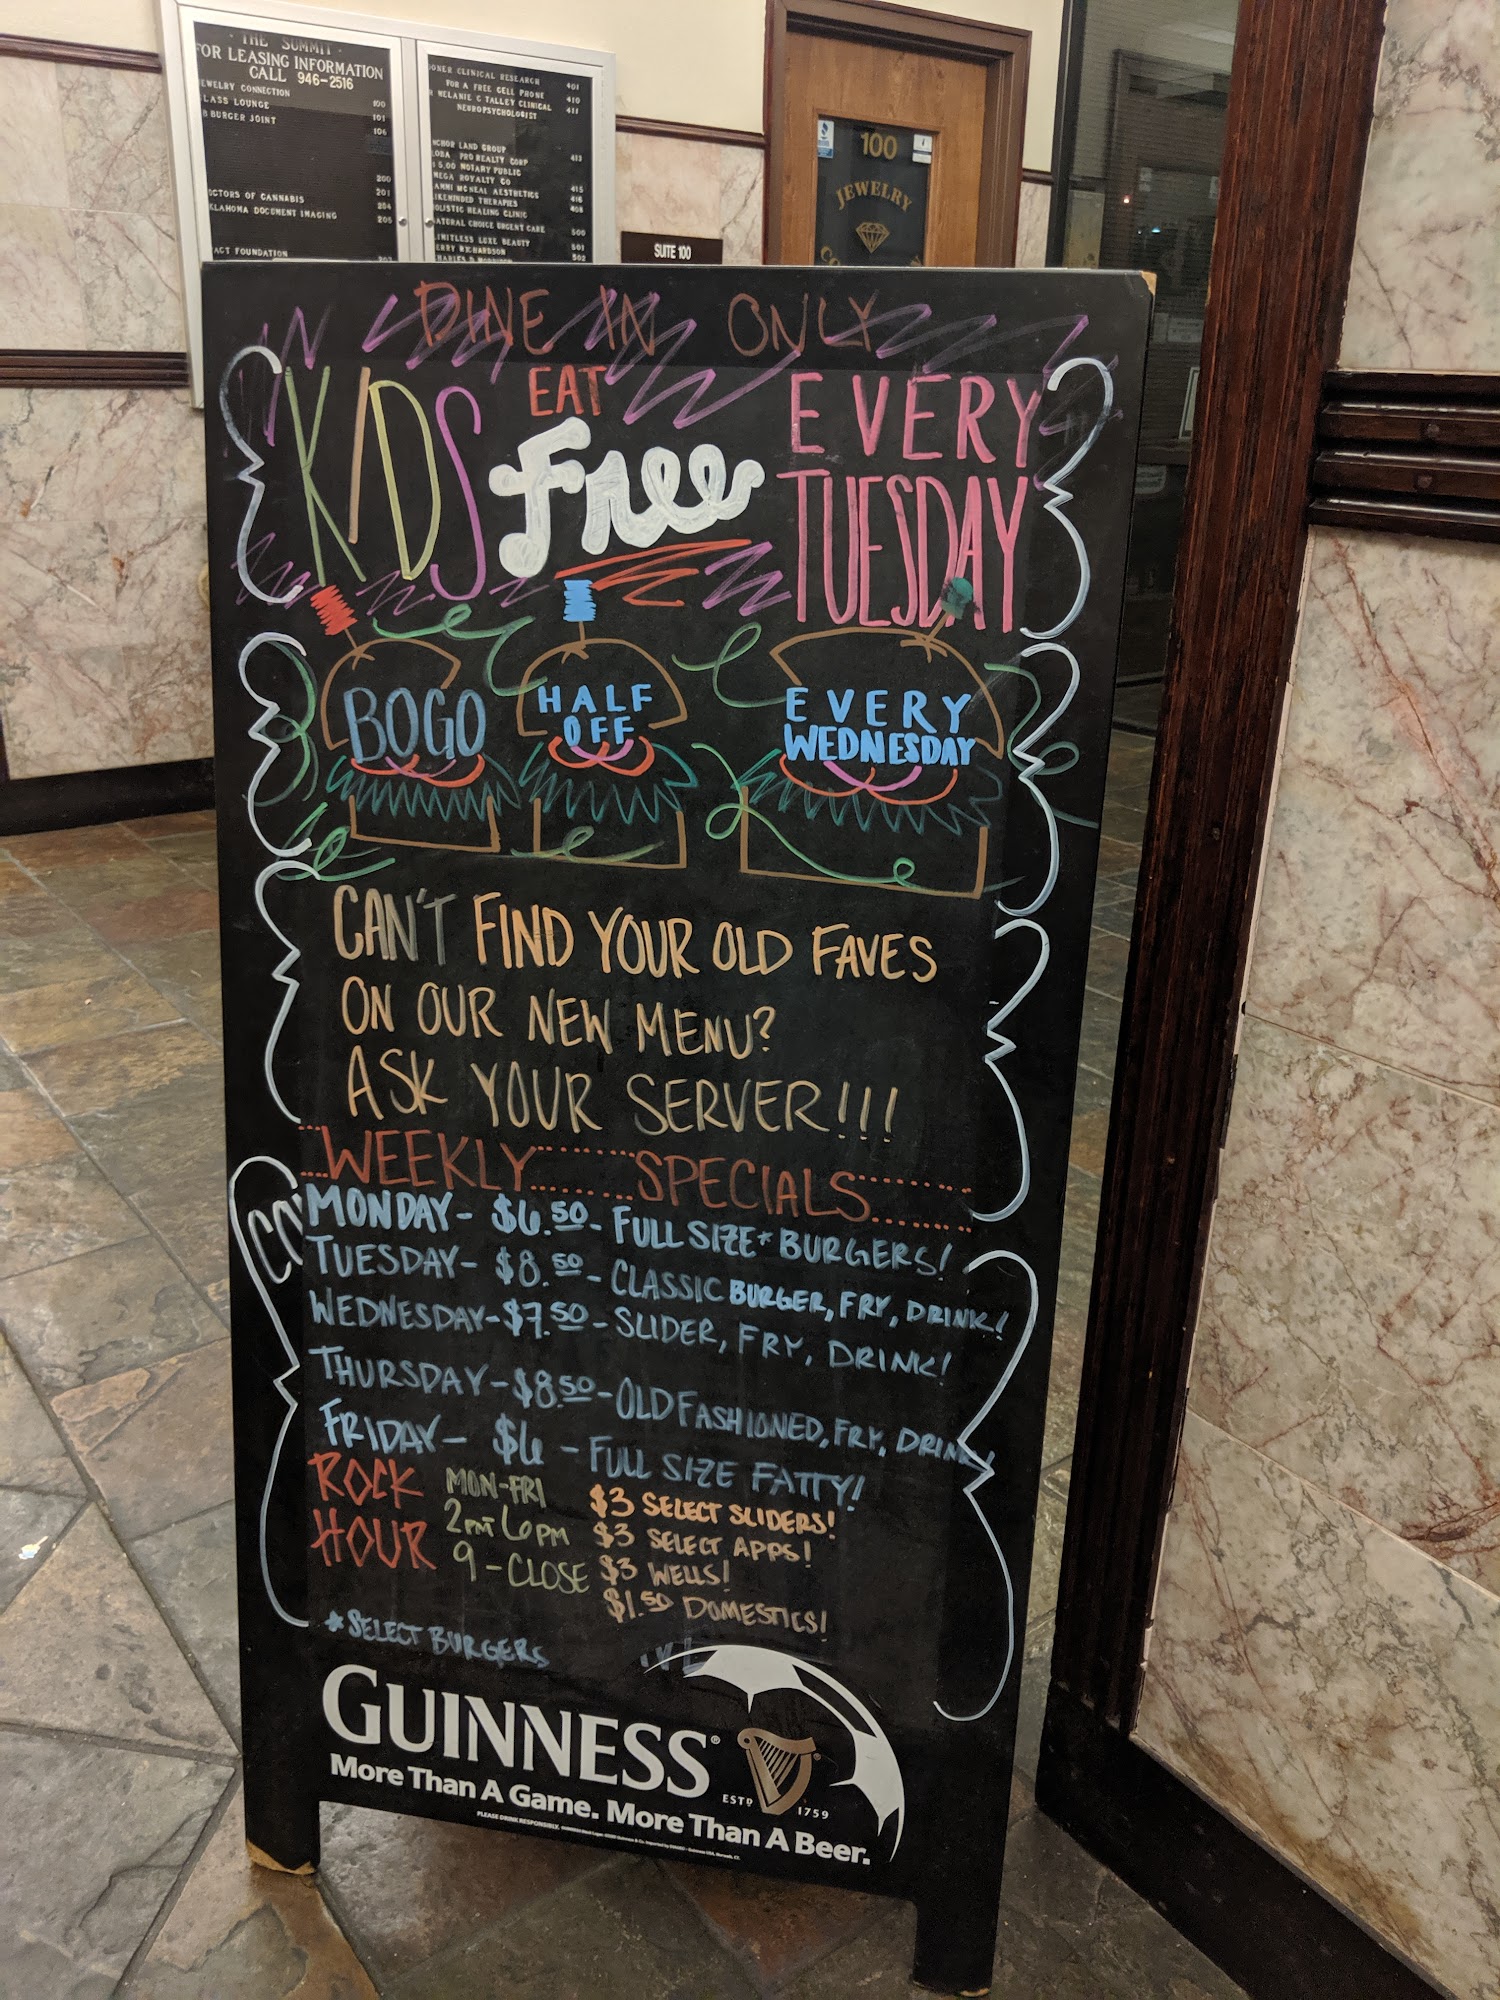 THE SUMMIT
FOR LEASING INFORMATION
CALL 946-2516
JEWELRY CONNECTION 100
LASS LOUNGE 101
BURGER JOINT 106
200
CTORS OF CANNABIS 201
KLAHOMA DOCUMENT IMAGING 204
205
ACT FOUNDATION
ONER CLINICAL RESEARCH 401
FOR A FREE CELL PHONE 410
MELANIE C TALLEY CLINICAL 411
NEUROPSYCHOLOGIST
NCHOR LAND GROUP
PRO REALTY CORP 413
5.00 NOTARY PUBLIC
MEGA ROYALTY CO
MCNEAL AESTHETICS 415
IKEMINDED THERAPIES 416
OLISTIC HEALING CLINIC 408
ATURAL CHOICE URGENT CARE 500
IMITLESS LUXE BEAUTY 501
ERRY RICHARDSON 502
100
JEWELRY
SUITE 100
DINE IN ONLY
KIDS EAT Free EVERY TUESDAY
BOGO HALF OFF EVERY WEDNESDAY
CAN'T FIND YOUR OLD FAVES
ON OUR NEW MENU?
ASK YOUR SERVER!!!
WEEKLY SPECIALS
MONDAY - $6.50 - FULL SIZE* BURGERS!
TUESDAY - $8.50 - CLASSIC BURGER, FRY, DRINK!
WEDNESDAY - $7.50 - SLIDER, FRY, DRINK!
THURSDAY - $8.50 - OLD FASHIONED, FRY, DRINK!
FRIDAY - $6 - FULL SIZE FATTY!
ROCK HOUR
MON-FRI
2PM-6PM
9-CLOSE
$3 SELECT SLIDERS!
$3 SELECT APPS!
$3 WELLS!
$1.50 DOMESTICS!
*SELECT BURGERS
GUINNESS®
ESTD 1759
More Than A Game. More Than A Beer.
PLEASE DRINK RESPONSIBLY.